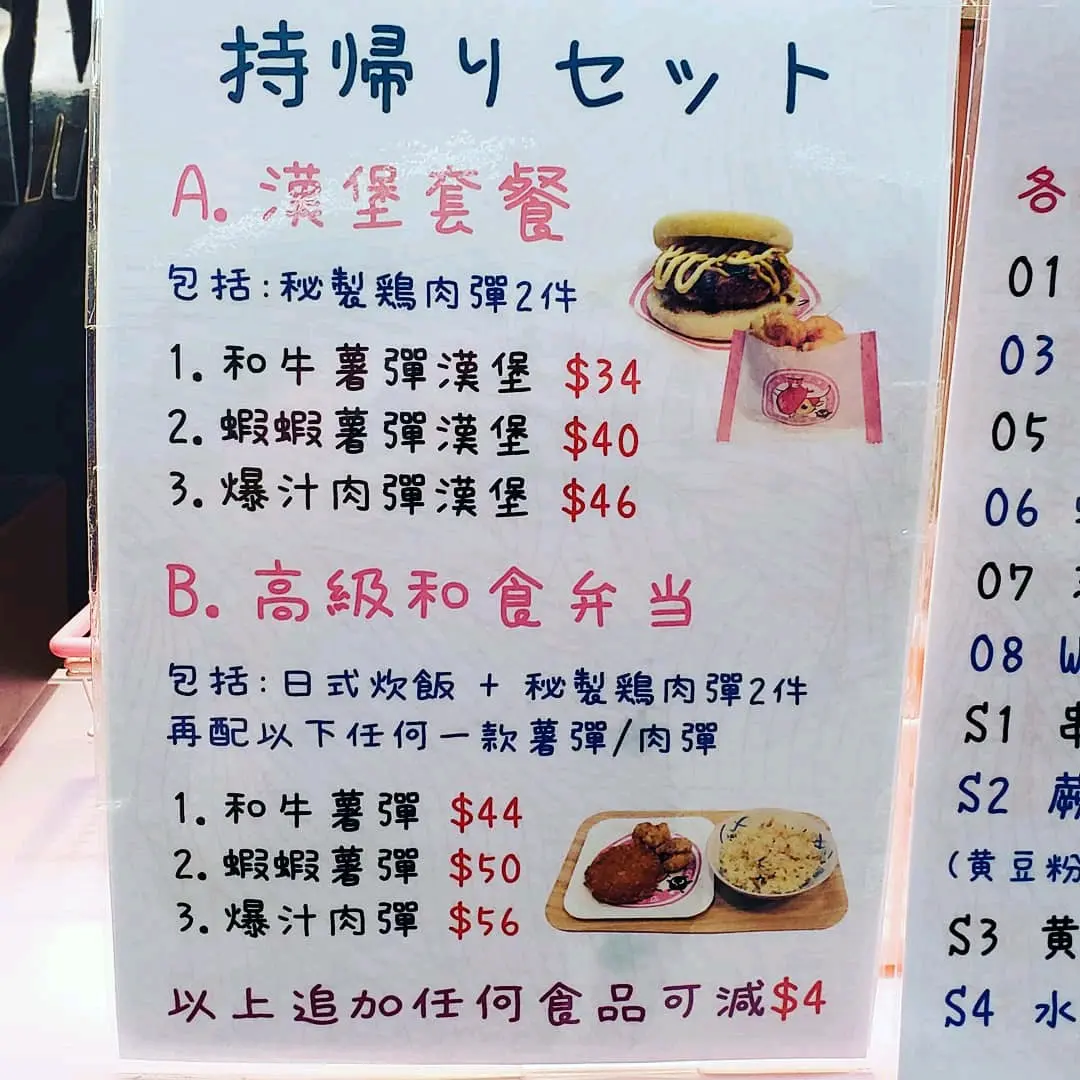 持帰りセット
A. 漢堡套餐
包括:秘製鶏肉彈2件
1. 和牛薯彈漢堡 $34
2. 蝦蝦薯彈漢堡 $40
3. 爆汁肉彈漢堡 $46
B. 高級和食弁当
包括:日式炊飯 + 秘製鶏肉彈2件
再配以下任何一款薯彈/肉彈
1. 和牛薯彈 $44
2. 蝦蝦薯彈 $50
3. 爆汁肉彈 $56
以上追加任何食品可減$4
各
01
03
05
06
07
08 W
S1 串
S2 蕨
(黄豆粉
S3 黄
S4 水